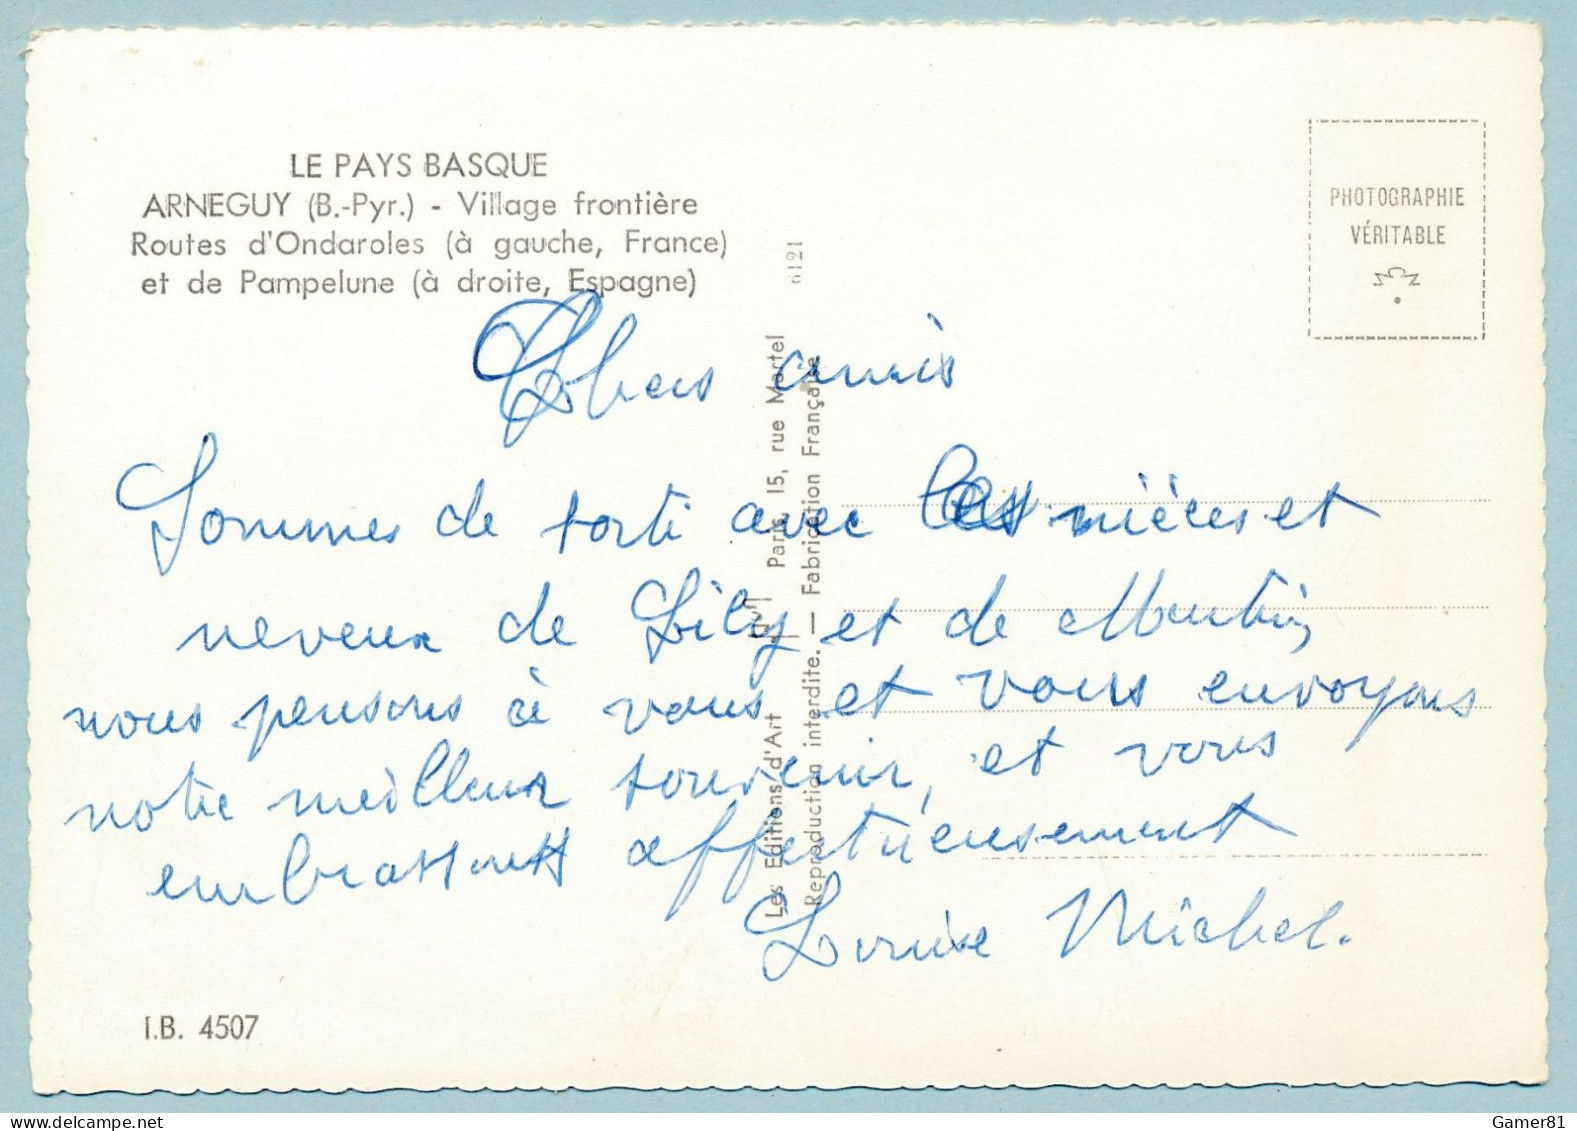 LE PAYS BASQUE
ARNEGUY (B.-Pyr.) - Village frontière
Routes d'Ondaroles (à gauche, France)
et de Pampelune (à droite, Espagne)
PHOTOGRAPHIE
VÉRITABLE
6121
Les Editions d'Art Paris, 15, rue Martel
Reproduction interdite. — Fabrication Française
Chers amis
Sommes de sorti avec les nièces et
neveux de Lily et de
nous pensons à vous et vous envoyons
notre meilleur souvenir, et vous
embrassons affectueusement
Louise Michel.
I.B. 4507
Gamer81